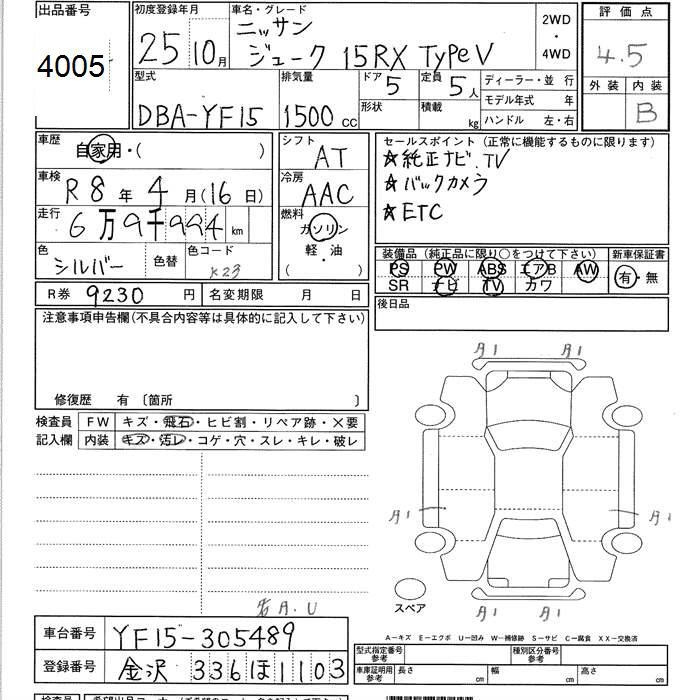 出品番号
4005
初度登録年月
25 10月
車名・グレード
ニッサン
ジューク 15RX TypeV
2WD
・
4WD
評価点
4.5
外装 内装
B
型式
DBA-YF15
排気量
1500 CC
ドア 5
形状
定員 5人
積載 kg
ディーラー・並行
モデル年式 年
ハンドル 左・右
車歴
自家用・( )
車検
R8年4月(16日)
走行
6万9千994km
色
シルバー
色替
色コード
K23
シフト
AT
冷房
AAC
燃料
ガソリン
軽・油
( )
セールスポイント(正常に機能するものに限ります)
☆純正ナビ.TV
☆バックカメラ
☆ETC
装備品(純正品に限り○をつけて下さい)
PS PW ABS エアB AW
SR ナビ TV カワ
新車保証書
有・無
R券 9230円
名変期限 月 日
後日品
注意事項申告欄(不具合内容等は具体的に記入して下さい)
修復歴 有 〔箇所 〕
検査員
記入欄
FW キズ・飛石・ヒビ割・リペア跡・×要
内装 キズ・汚レ・コゲ・穴・スレ・キレ・破レ
A1 A1
A1 A1
A1 A1
スペア
A.U
車台番号 YF15-305489
登録番号 金沢 336 ほ 1103
A-キズ E-エクボ U-凹み W-補修跡 S-サビ C-腐食 XX-交換済
型式指定番号
参考
種別区分番号
参考
車庫証明用
参考
長さ cm 幅 cm 高さ cm